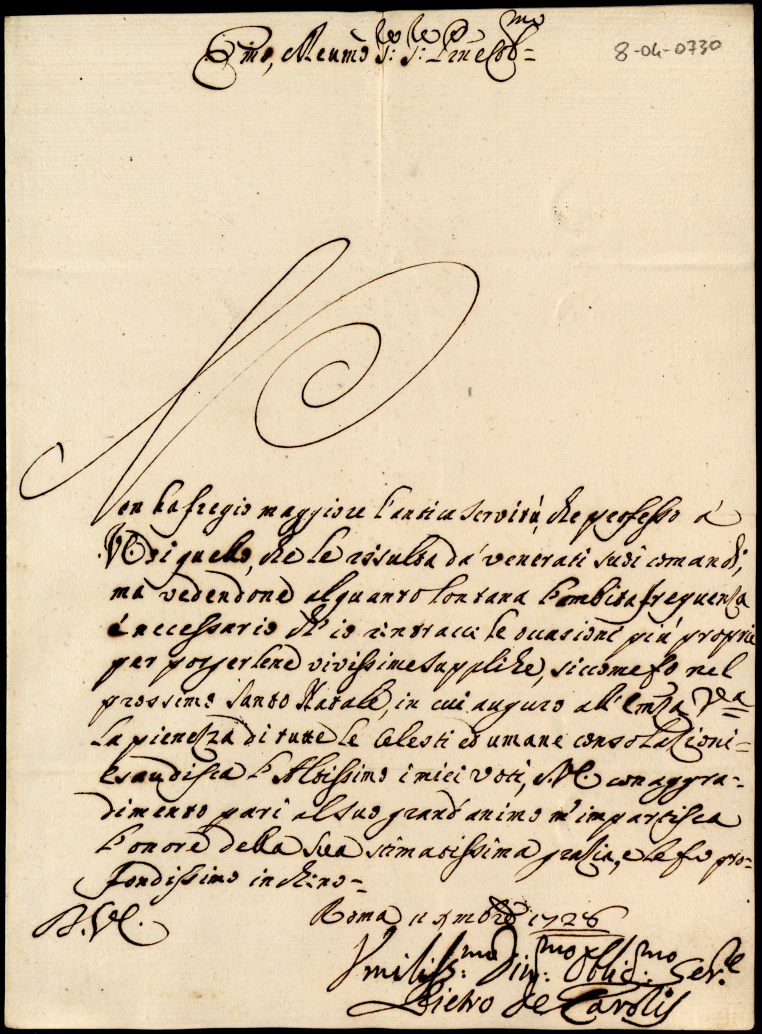 Emo, e Reumo Sr: Sr: Prne Colmo=
8-04-0730
Non ha fregio maggiore l'antica servitù, che professo à
V.E. di quello, che le risulta da' venerati suoi comandi;
ma vedendone alquanto lontana l'ambita frequenza
è necessario ch'io rintracci le occasioni più proprie
per porgerlene vivissime suppliche, siccome fo nel
prossimo Santo Natale, in cui auguro all'Emza Va=
la pienezza di tutte le celesti ed umane consolazioni=
Esaudisca l'Altissimo i miei voti, e V.E. con aggra-
dimento pari al suo grand'animo m'impartisca
l'onore della sua stimatissima grazia, e le fo pro-
fondissimo inchino=
D.V.E. Roma 11 Xmbre 1726
Vmiliss:mo Div:mo Obblig:mo Ser:re
Pietro de Carolis